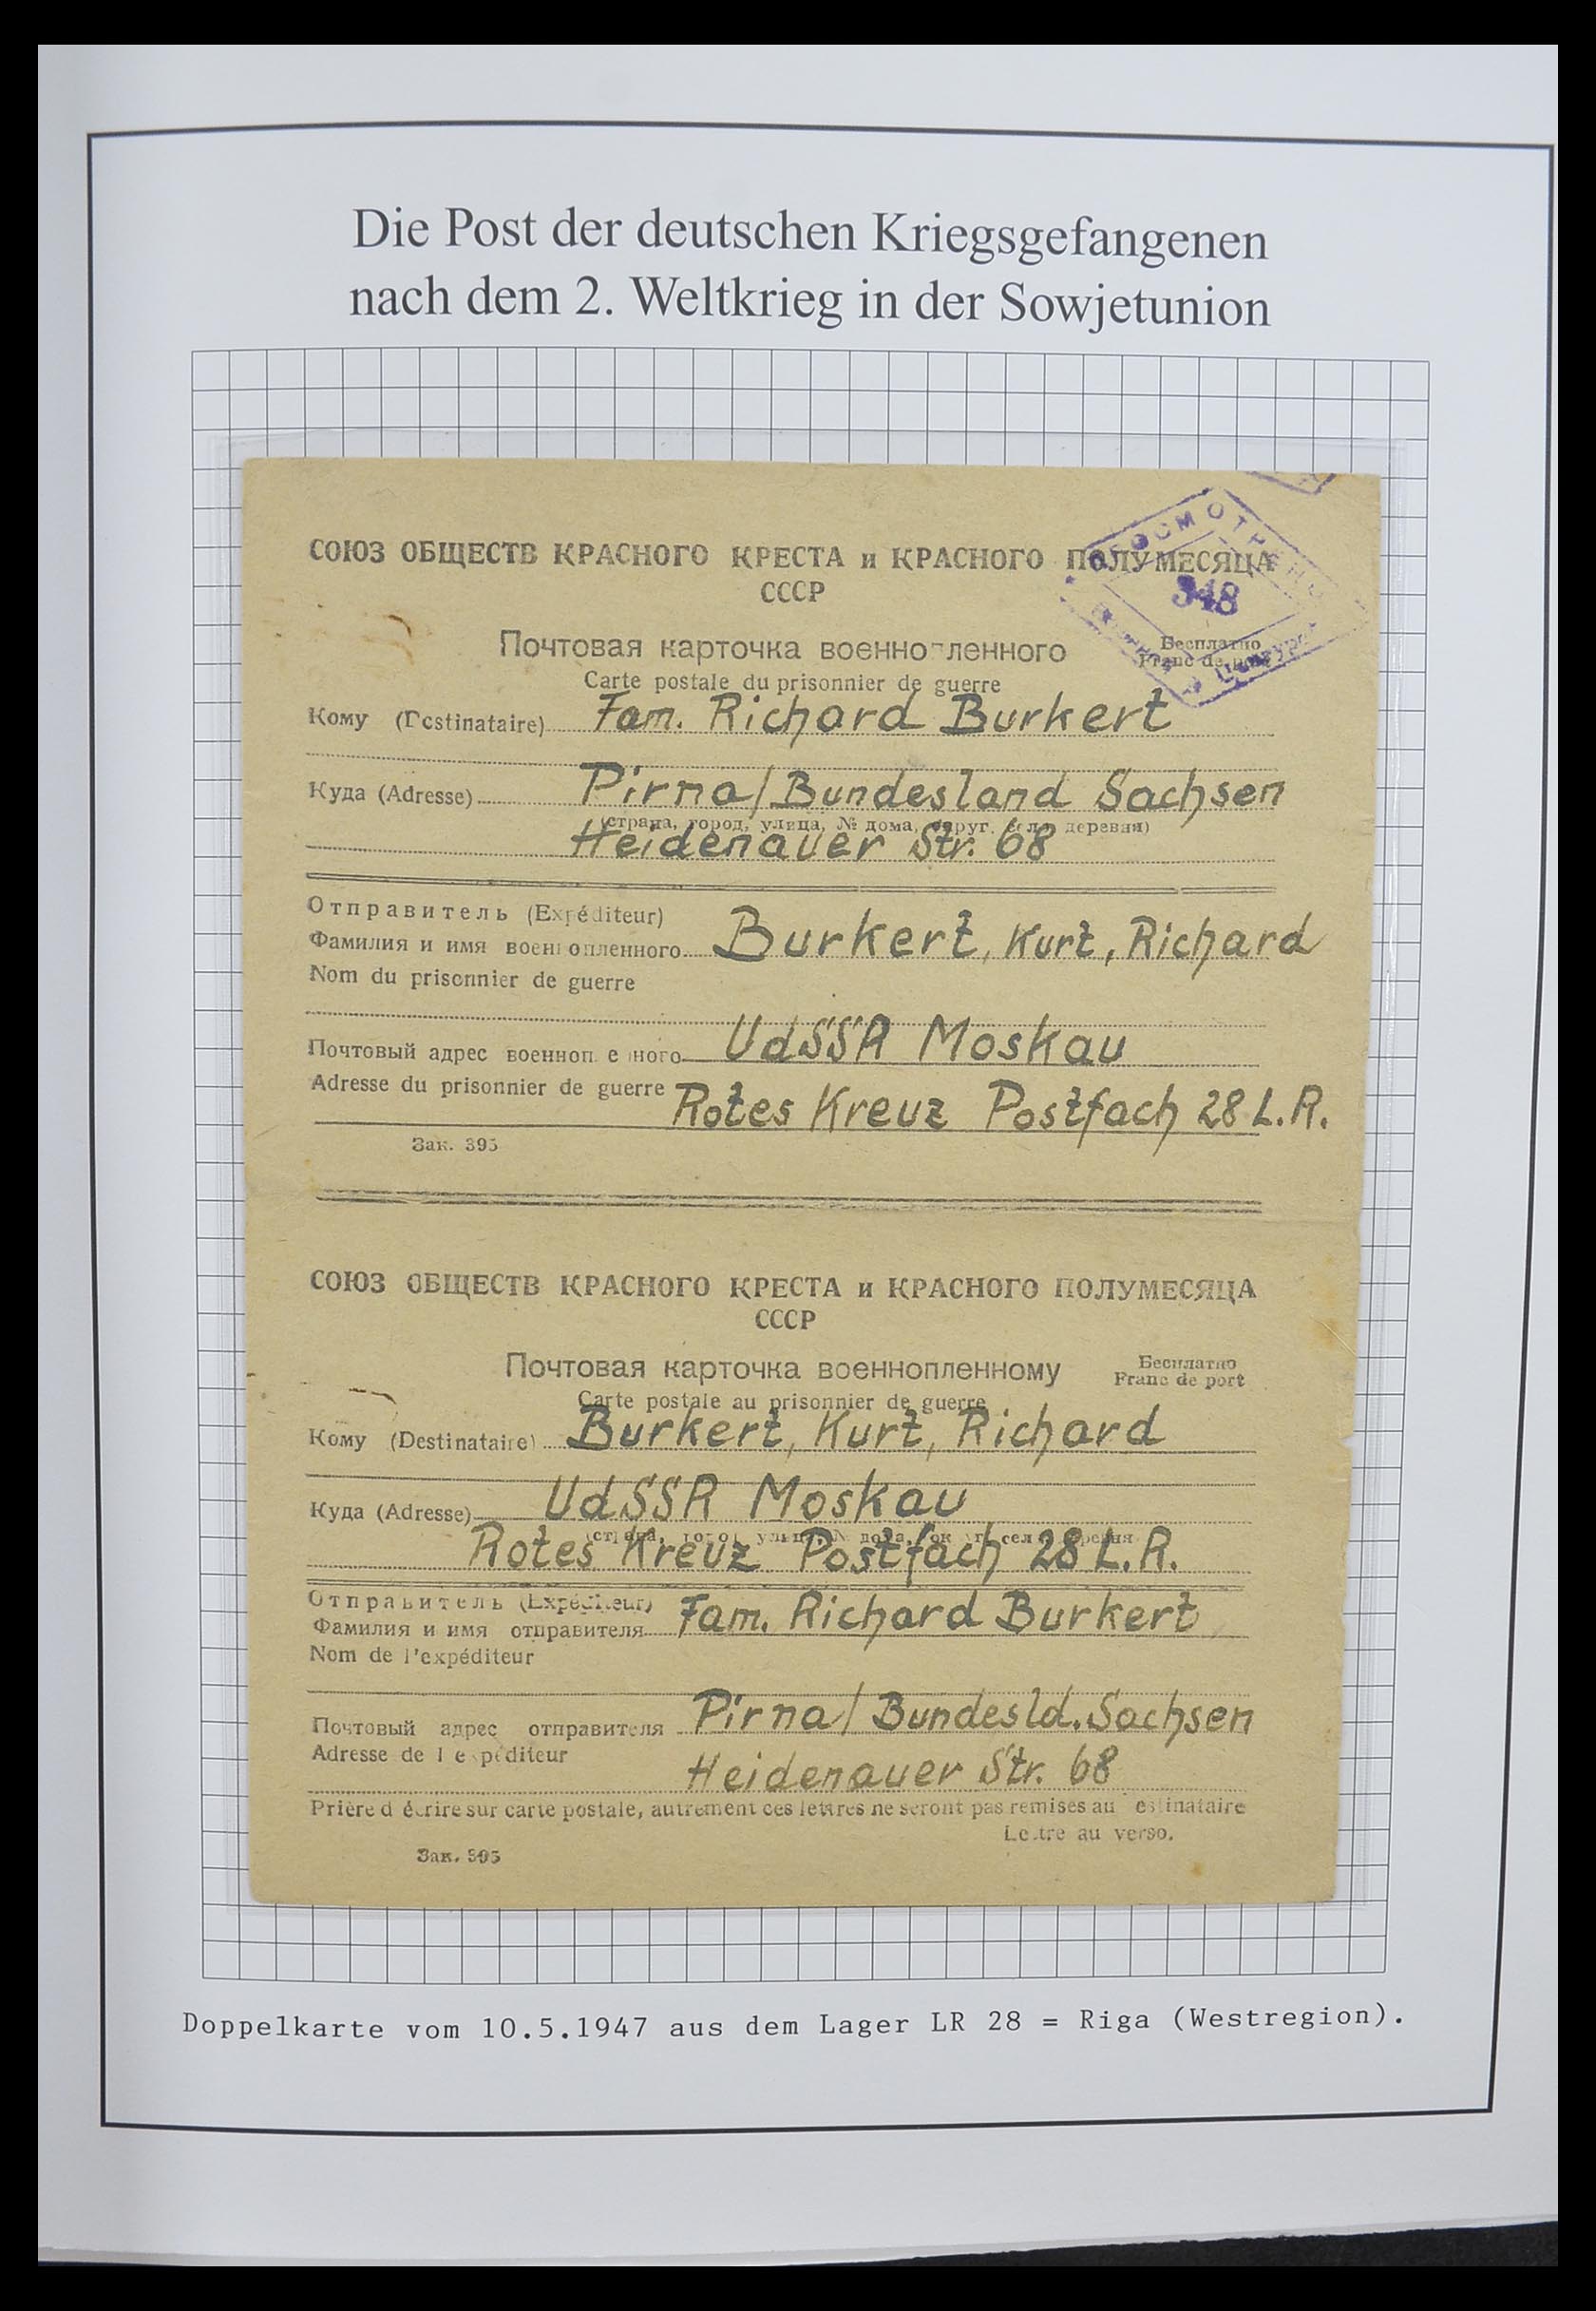 Die Post der deutschen Kriegsgefangenen
nach dem 2. Weltkrieg in der Sowjetunion
СОЮЗ ОБЩЕСТВ КРАСНОГО КРЕСТА и КРАСНОГО ПОЛУМЕСЯЦА
СССР
348
Почтовая карточка военнопленного
Бесплатно
Franc de port
Carte postale du prisonnier de guerre
Кому (Destinataire) Fam. Richard Burkert
Куда (Adresse) Pirna/Bundesland Sachsen
(страна, город, улица, № дома, округ, село, деревня)
Heidenauer Str. 68
Отправитель (Expéditeur)
Фамилия и имя военнопленного Burkert, Kurt, Richard
Nom du prisonnier de guerre
Почтовый адрес военнопленного UdSSR Moskau
Adresse du prisonnier de guerre Rotes Kreuz Postfach 28 L.R.
Зак. 395
СОЮЗ ОБЩЕСТВ КРАСНОГО КРЕСТА и КРАСНОГО ПОЛУМЕСЯЦА
СССР
Почтовая карточка военнопленному
Бесплатно
Franc de port
Carte postale au prisonnier de guerre
Кому (Destinataire) Burkert, Kurt, Richard
Куда (Adresse) UdSSR Moskau
Rotes Kreuz Postfach 28 L.R.
Отправитель (Expéditeur) Fam. Richard Burkert
Фамилия и имя отправителя
Nom de l'expéditeur
Почтовый адрес отправителя Pirna/Bundesld. Sachsen
Adresse de l'expéditeur Heidenauer Str. 68
Prière d'écrire sur carte postale, autrement ces lettres ne seront pas remises au destinataire
Lettre au verso.
Зак. 395
Doppelkarte vom 10.5.1947 aus dem Lager LR 28 = Riga (Westregion).